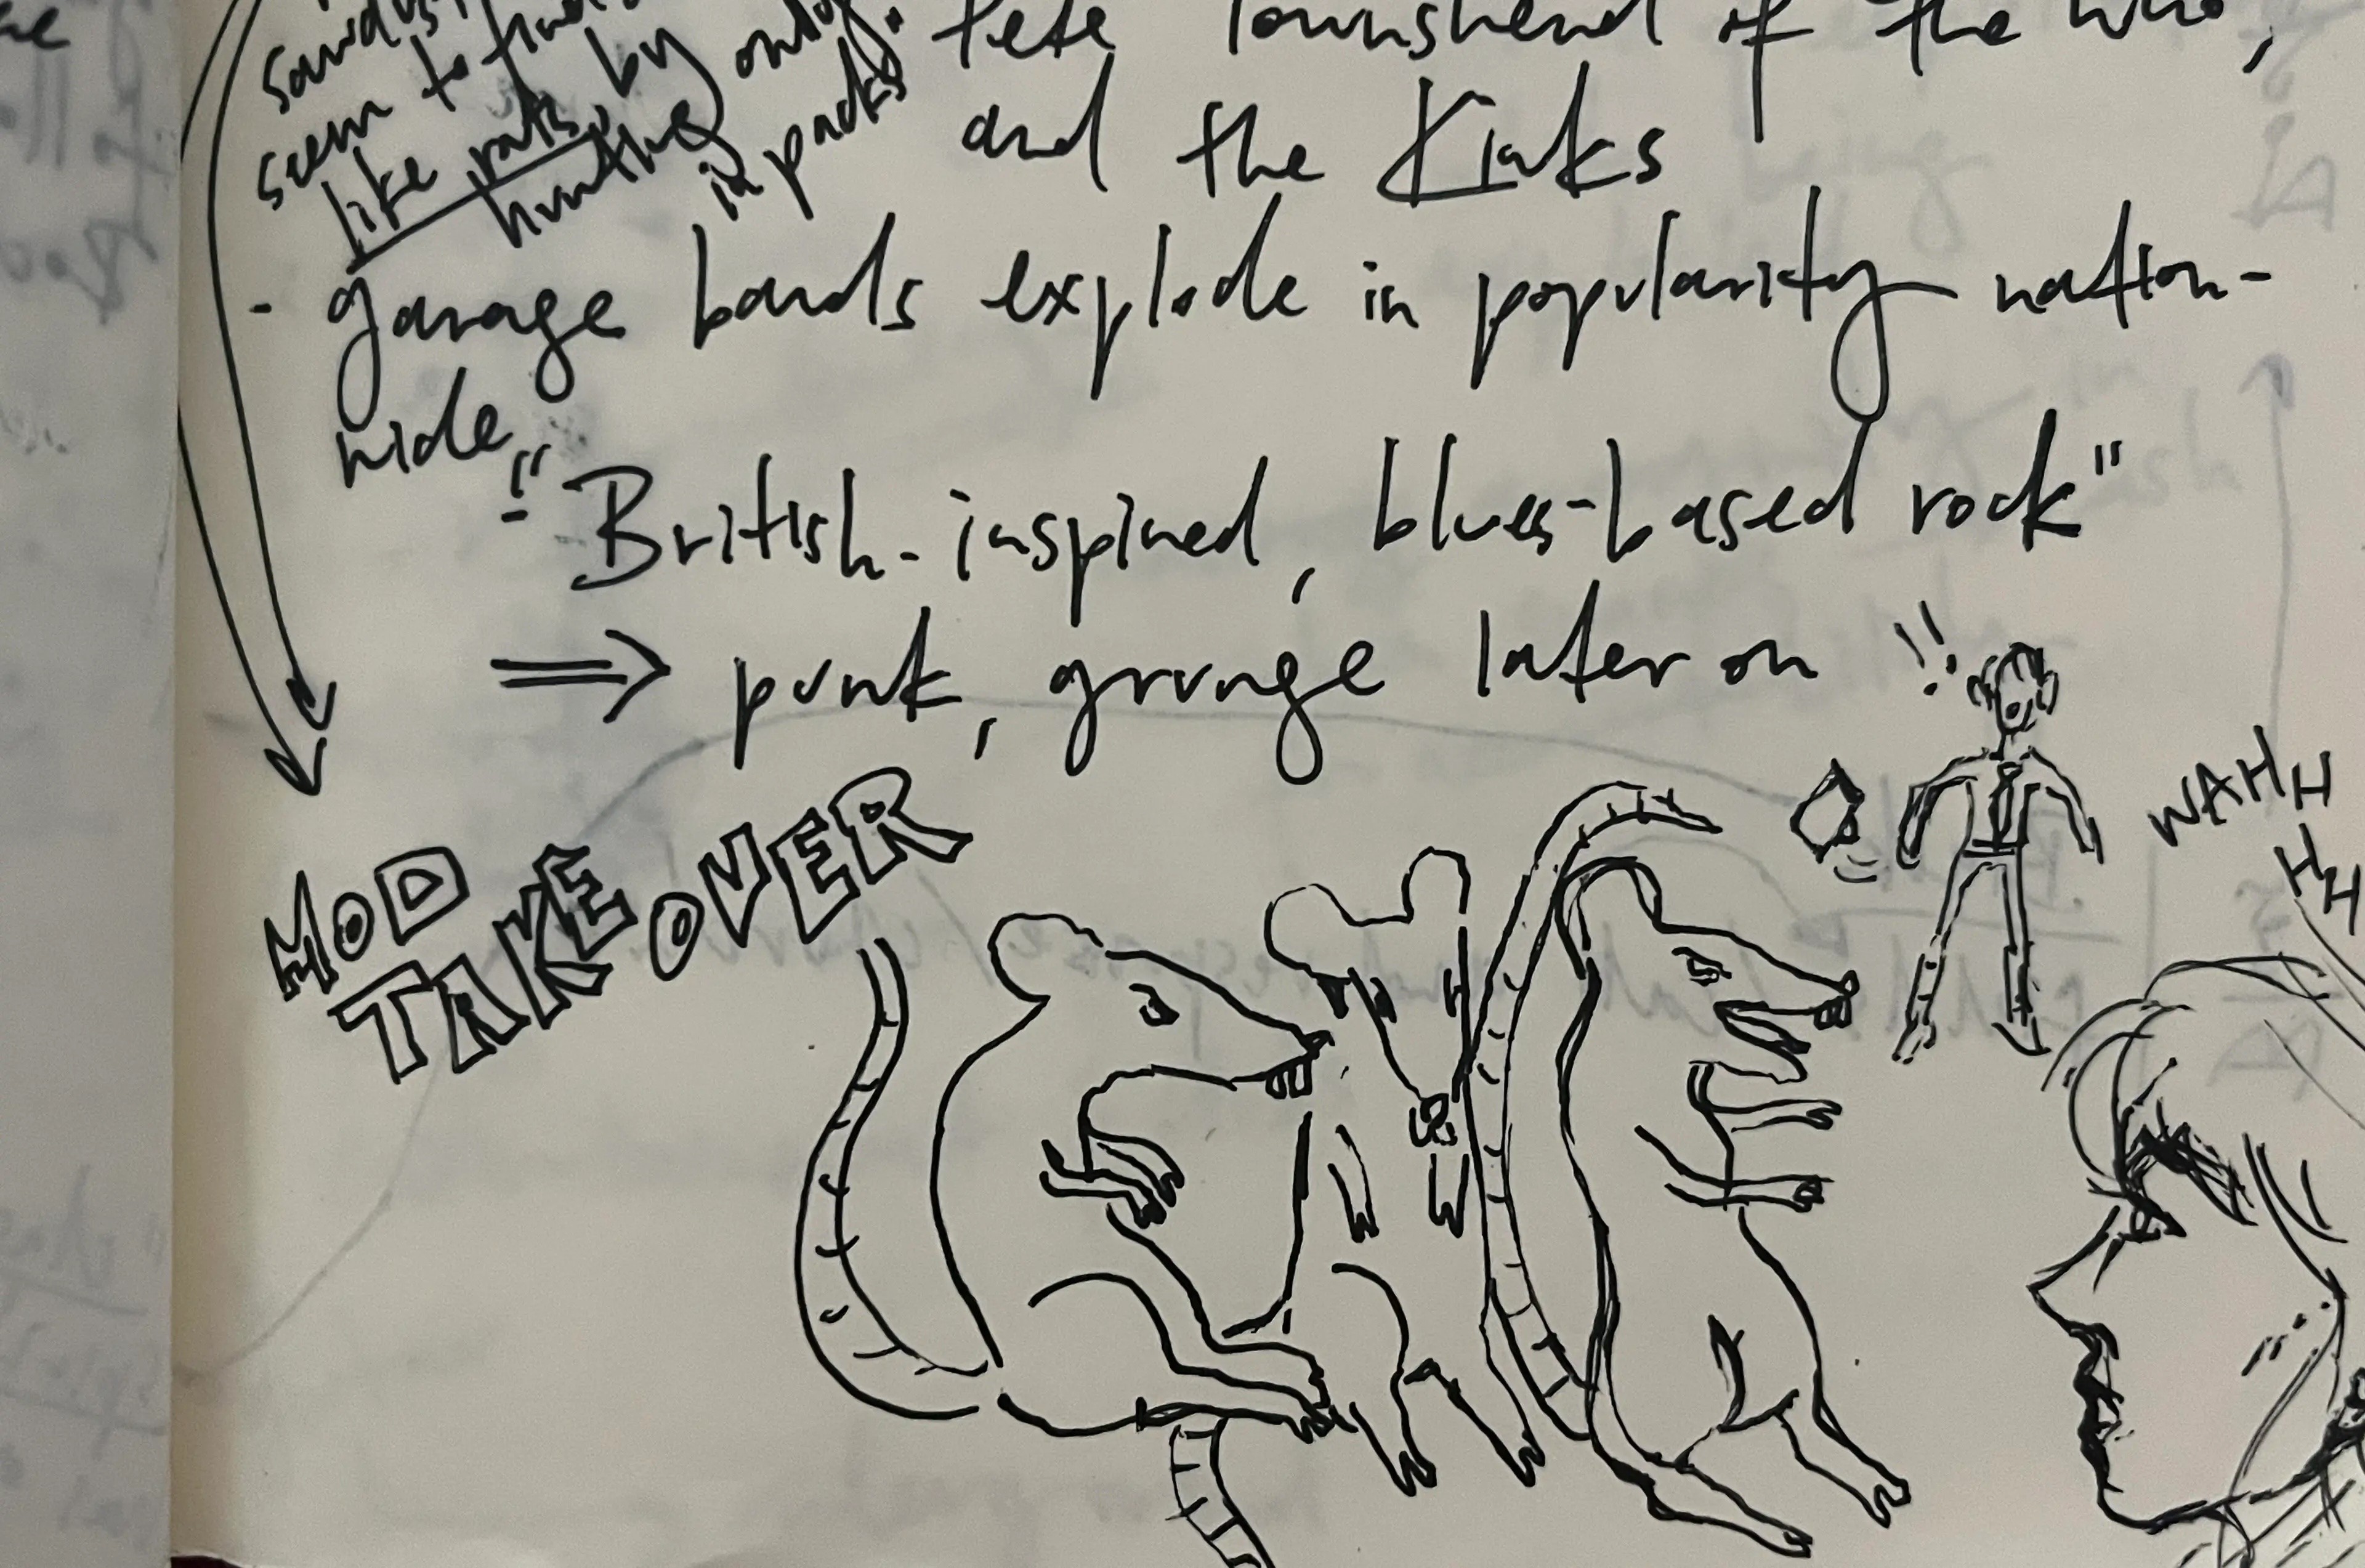 seem to
like rats, by only
hunting in packs.
Pete Townshend of the Who,
and the Kinks
- garage bands explode in popularity nation-
wide
- "British-inspired, blues-based rock"
⇒ punk, grunge later on
!!
WAHH
HH
MOD
TAKEOVER